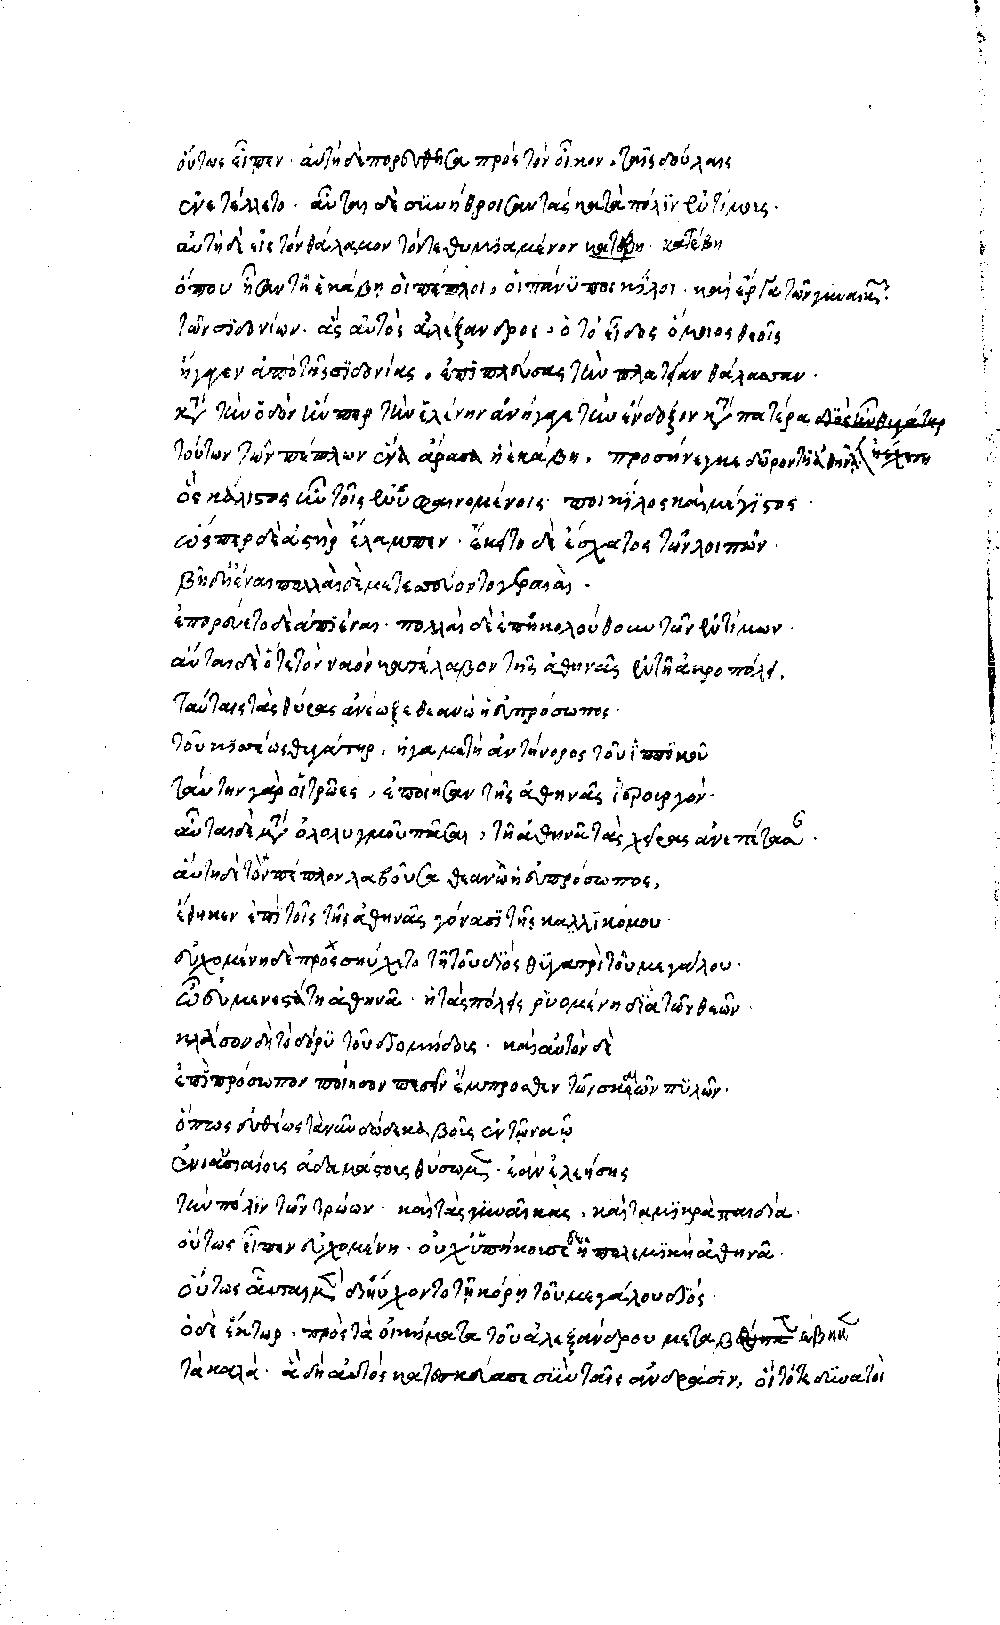 οὕτως εἶπεν · αὐτὴ δὲ πορευθεῖσα πρὸς τὸν οἶκον , ταῖς δούλαις
ἐνετέλλετο · αὗται δὲ συνήθροισαν τὰς κατὰ πόλιν ἐντίμους ·
αὐτὴ δὲ εἰς τὸν θάλαμον τὸν τεθυμιαμένον κατέβη · κατέβη
ὅπου ἦσαν τῇ ἑκάβῃ οἱ πέπλοι , οἱ πάνυ ποικίλοι · καὶ ἔργα τῶν γυναικῶν
τῶν σιδονίων · ἃς αὐτὸς ἀλέξανδρος · ὁ τὸ εἶδος ὅμοιος θεοῖς
ἤγαγεν ἀπὸ τῆς σιδονίας , ἐπιπλεύσας τὴν πλατεῖαν θάλασσαν ·
κατὰ τὴν ὁδὸν ἥνπερ τὴν ἑλένην ἀνήγαγε τὴν ἔνδοξον κατὰ πατέρα
τούτων τῶν πέπλων ἕνα ἄρασα ἡ ἑκάβη , προσήνεγκε δῶρον τῇ ἀθηνᾷ
ὃς κάλιστος ἦν τοῖς ὑφαινομένοις ποικίλος καὶ μέγιστος ·
ὥσπερ δὲ ἀστὴρ ἔλαμπεν · ἔκειτο δὲ ἔσχατος τῶν λοιπῶν ·
βῆ δ' ἰέναι πολλαὶ δὲ μετεσσεύοντο γεραιαὶ ·
ἐπορεύετο δὲ ἀπιέναι · πολλαὶ δὲ ἐπηκολούθουν τῶν ἐντίμων ·
αὗται δὲ ὅτε τὸν ναὸν κατέλαβον τῆς ἀθηνᾶς ἐν τῇ ἀκροπόλει ,
ταύταις τὰς θύρας ἀνέωξε θεανὼ ἡ εὐπρόσωπος ·
τοῦ κισσέως θυγάτηρ , ἡ γαμετὴ ἀντήνορος τοῦ ἱππικοῦ
ταύτην γὰρ οἱ τρῶες , ἐποίησαν τῆς ἀθηνᾶς ἱερουργόν ·
αὗται δὲ μετὰ ὀλολυγμοῦ πᾶσαι , τῇ ἀθηνᾷ τὰς χεῖρας ἀνεπέτασαν ·
αὐτὴ δὲ τὸν πέπλον λαβοῦσα θεανὼ ἡ εὐπρόσωπος ,
ἔθηκεν ἐπὶ τοῖς τῆς ἀθηνᾶς γόνασι τῆς καλλικόμου ·
εὐχομένη δὲ προσηύχετο τῇ τοῦ διός θυγατρὶ τοῦ μεγάλου ·
ὦ εὐμενεστάτη ἀθηνᾶ · ἡ τὰς πόλεις ῥυομένη δῖα τῶν θεῶν ·
κλάσον δὴ τὸ δόρυ τοῦ διομήδους · καὶ αὐτὸν δὲ
ἐπὶ πρόσωπον ποίησον πεσεῖν ἔμπροσθεν τῶν σκαιῶν πυλῶν ·
ὅπως εὐθέως τανῦν δώδεκα βοῦς ἐν τῷ ναῷ
ἐνιαυσιαίους ἀδαμάστους θύσωμεν · ἐὰν ἐλεήσῃς
τὴν πόλιν τῶν τρώων · καὶ τὰς γυναῖκας , καὶ τὰ μικρὰ παιδία ·
οὕτως εἶπεν εὐχομένη · οὐχ ὑπήκουσε δὲ ἡ πολεμικὴ ἀθηνᾶ ·
οὕτως αὗται μὲν δὴ ηὔχοντο τῇ κόρῃ τοῦ μεγάλου διός ·
ὁ δὲ ἕκτωρ · πρὸς τὰ οἰκήματα τοῦ ἀλεξάνδρου
τὰ καλὰ · ἃ δὴ αὐτὸς κατεσκεύασε σὺν τοῖς ἀνδράσιν , οἳ τότε δυνατοὶ